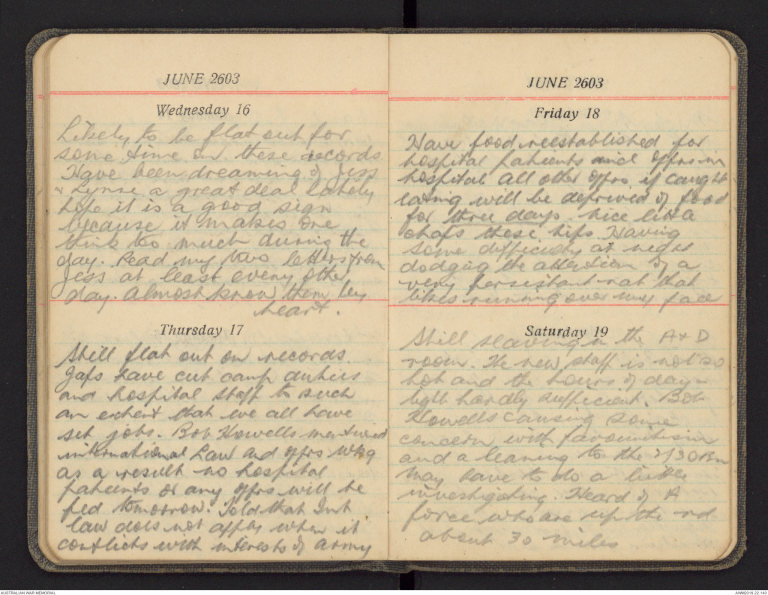 JUNE 2603
Wednesday 16
Likely to be flat out for
some time on these records
Have been dreaming of Jess
& Lynne a great deal lately
hope it is a good sign
because it makes one
think too much during the
day. Read my two letters from
Jess at least every other
day. Almost know them by
heart.
Thursday 17
Still flat out on records.
Japs have cut camp duties
and hospital staff to such
an extent that we all have
set jobs. Bob Howells mentioned
international Law and offrs
as a result no hospital
patients or any offrs will be
fed tomorrow. Told that Int
law does not apply when it
conflicts with interests of army
JUNE 2603
Friday 18
Have food reestablished for
hospital patients and offrs in
hospital all other offrs if caught
eating will be deprived of food
for three days. Nice little
chaps these Nips. Having
some difficulty at night
dodging the attention of a
very persistant rat that
likes running over my face
Saturday 19
Still slaving in the A & D
room. The new staff is not so
hot and the hours of day-
light hardly sufficient. Bob
Howells causing some
concern with favouritism
and a leaning to the 2/30 Bn
May have to do a little
investigating. Heard of A
force who are up the rd
about 30 miles
AUSTRALIAN WAR MEMORIAL